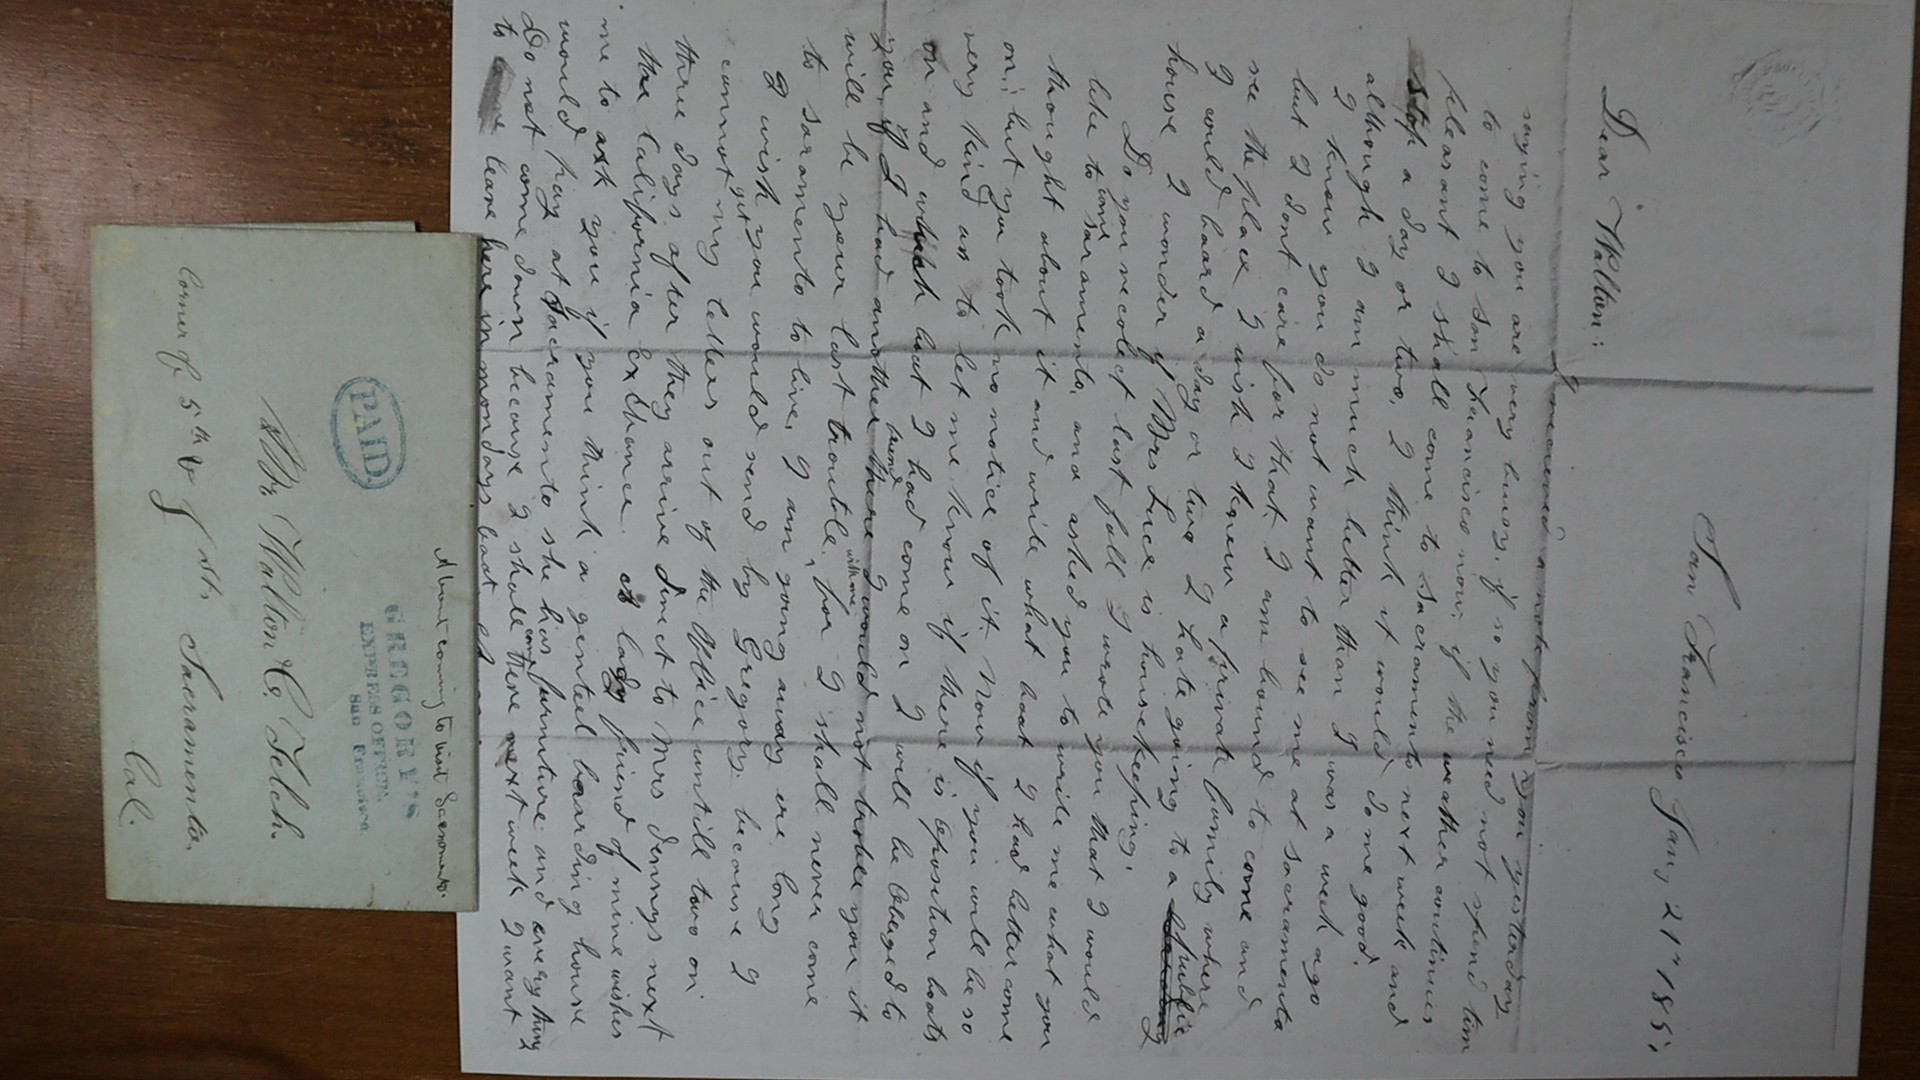 San Francisco Jany 21st 1851
Dear Walton:
I received a note from you yesterday
saying you are very buisy, if so you need not spend time
to come to San Francisco now, if the weather continues
pleasant I shall come to Sacramento next week and
stop a day or two, I think it would do me good.
although I am much better than I was a week ago
I know you do not want to see me at Sacramento
but I dont care for that I am bound to come and
see the place I wish I knew a private family where
I could board a day or two I hate going to a Public
house I wonder if Mrs Luce is housekeeping.
Do you recolect last fall I wrote you that I would
like to come Saramento, and asked you to write me what you
thought about it and write what boat I had better come
on, but you took no notice of it. Now if you will be so
very kind as to let me know if there is oposition boats
on and which boat I had come on I will be obleged to
you, if I had another friend there I would not trouble you it
will be your last trouble with me, for I shall never come
to Saramento to live, I am going away ere long
I wish you would send by Gregory because I
cannot get my letters out of the Office untill two or
three days after they arive direct to Mrs Dennys next
the California Exchance. a lady friend of mine wishes
me to ask you if you think a genteel boarding house
would pay at Sacramento she has furniture and every thing
Do not come down because I shall come there next week I want
to leave here in mondays boat
About coming to visit Sacramento.
GREGORY'S
EXPRESS OFFICE,
San Francisco.
PAID.
Mr Walton C. Felch.
Corner of 5th & J sts. Sacramento,
Cal.